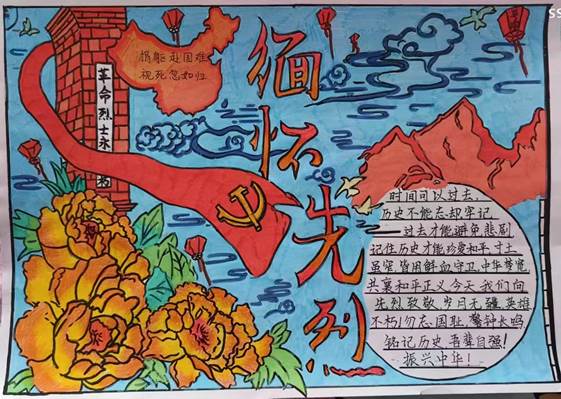 捐躯赴国难
视死忽如归
革命烈士永
缅怀先烈
时间可以过去,
历史不能忘却牢记
过去才能避免悲剧
记住历史才能珍爱和平寸土
虽窄,皆用鲜血守卫,中华梦宽
共襄和平正义今天我们向
先烈致敬,岁月无疆,英雄
不朽!勿忘国耻,警钟长鸣
铭记历史,吾辈自强!
振兴中华!